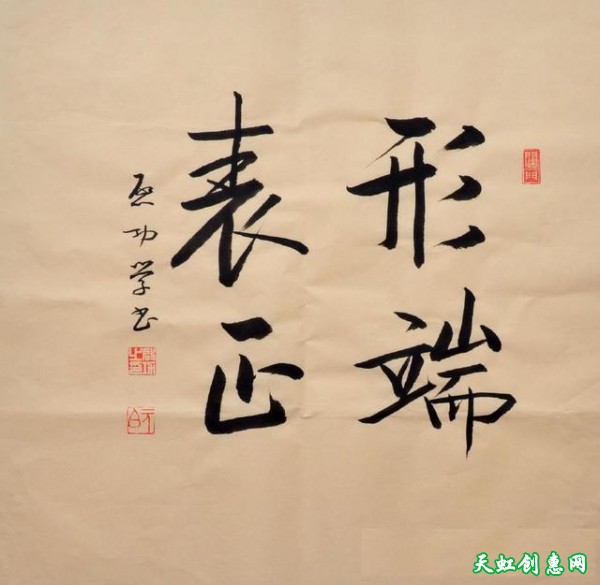 形端
表正
启功学书
天虹创惠网